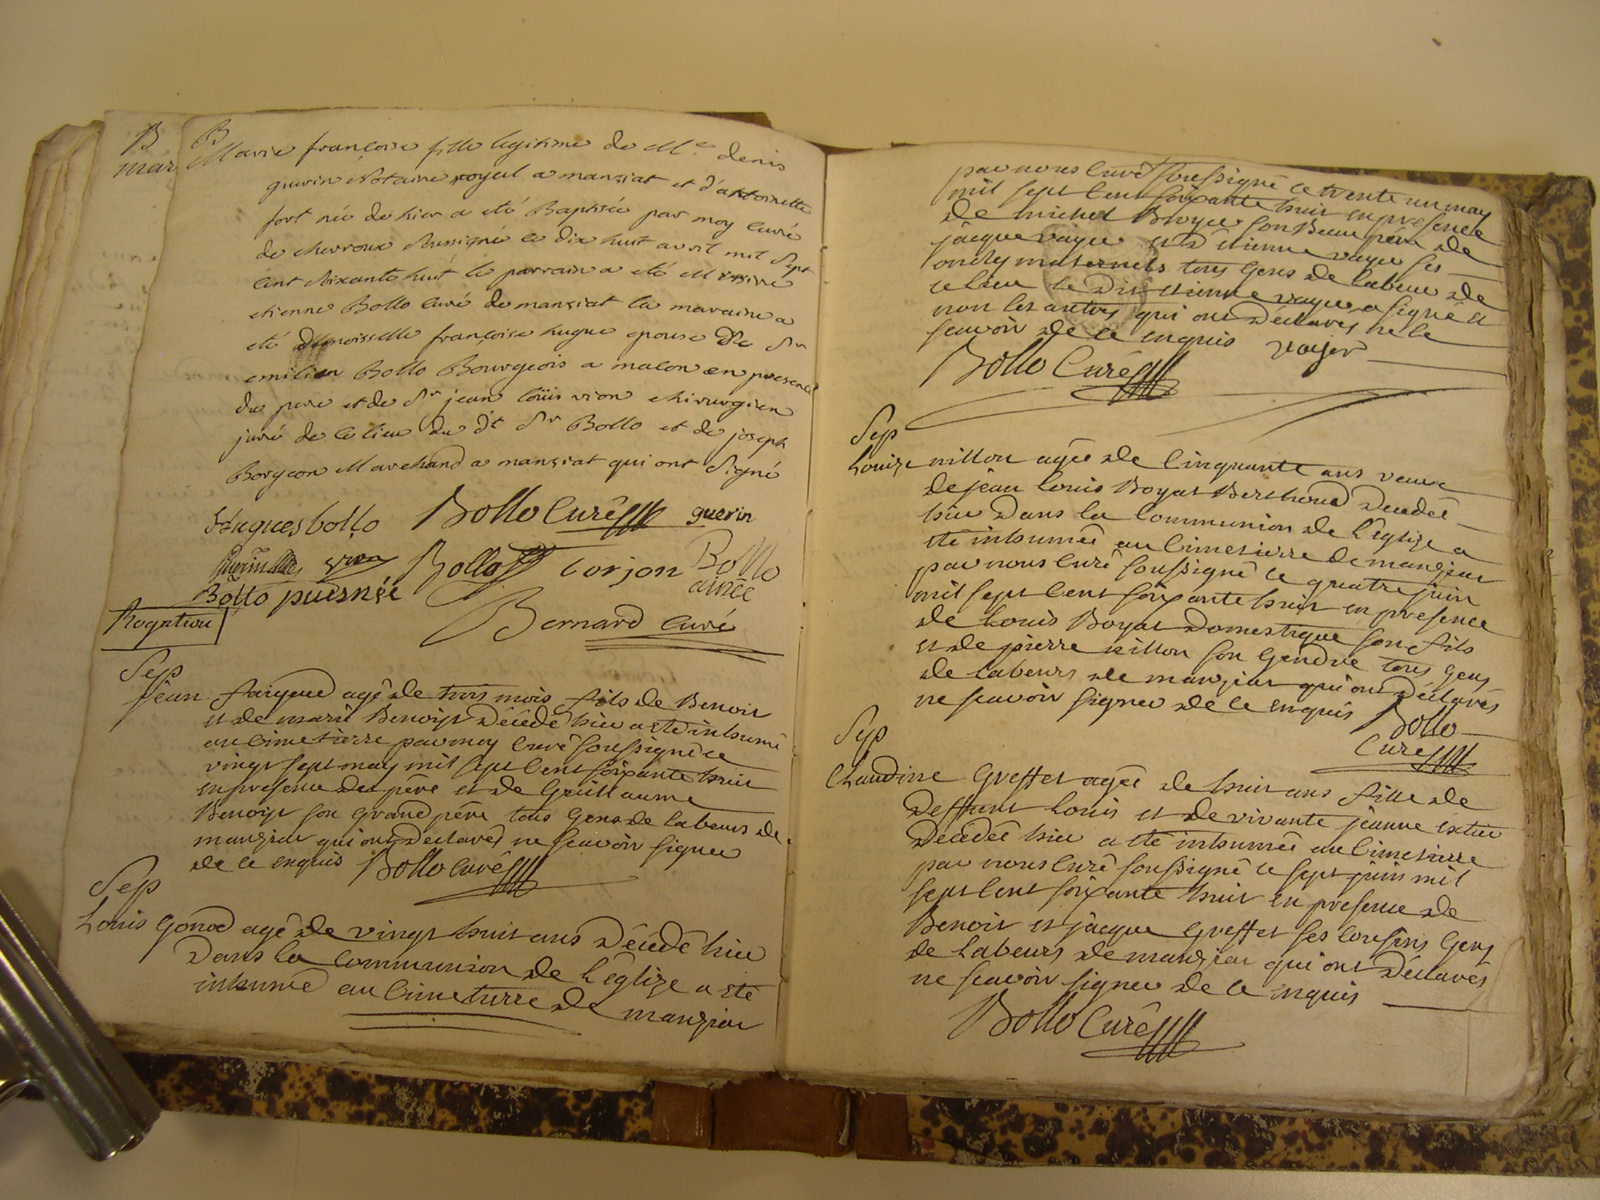 B
mar
B
Marie françoise fille legitime de Me denis
guerin Notaire royal a manziat et d'antoinette
fort née de hier a été Baptisée par moy curé
de chevroux Soussigné le dix huit avril mil Sept
cent Soixante huit le parrain a été Messire
etienne Bollo Curé de manziat la maraine a
été Demoisselle françoise hugue epouse De Sr
emilien Bollo Bourgeois a macon en presence
du pere et de Sr jean loüis vion chirurgien
juré de ce lieu du dt Sr Bollo et de joseph
Borjeon Marchand a manziat qui ont Signé
huguesbollo Bollo Curé guerin
vion Bollo Borjon Bollo
ainée
Bollo puisnée
Bernard curé
Rogation
Sep
jean faigoud agé de trois mois fils de Benoit
et de marie Benoist décédé hier a été inhumé
au Cimetierre par moy Curé soussigné ce
vingt sept may mil sept Cent soixante huit
en presence du père et de Guillaume
Benoist son grand père tous gens de labeurs de
manziat qui ont declarés ne scavoir signer
de ce enquis Bollo Curé
Sep
Louis gonod agé de vingt huit ans décédé hier
dans la communion de l'église a été
inhumé au Cimetierre de manziat
par nous Curé soussigné ce trente un may
mil sept Cent soixante huit en presence
de michel Broyer son Beau père de
jacque voyer et d'etienne voyer ses
oncles maternels tous gens de labeur de
ce lieu le dit etienne voyer a signé et
non les autres qui ont declarés ne le
scavoir de ce enquis voyer
Bollo Curé
Sep
Louize nillon agée de Cinquante ans veuve
de jean Louis Boyat Berthoud décedée
hier dans la Communion de l'églize a
été inhumée au Cimetierre de manziat
par nous Curé soussigné ce quatre juin
mil sept Cent soixante huit en presence
de Louis Boyat domestique son fils
et de pierre nillon son gendre tous gens
de labeurs de manziat qui ont déclarés
ne scavoir signer de ce enquis Bollo
Curé
Sep
Claudine Greffet agée de huit ans fille de
deffunt Louis et de vivante jeanne
décédée hier a été inhumée au Cimetierre
par nous Curé soussigné ce sept juin mil
sept Cent soixante huit en presence de
Benoit et jacque Greffet ses Cousins gens
de Labeurs de manziat qui ont déclarés
ne scavoir signer de ce enquis
Bollo Curé